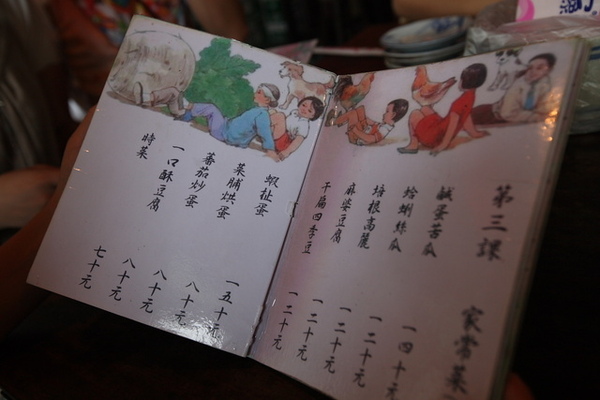 第三課 家常菜
鹹蛋苦瓜 一四十元
蛤蜊絲瓜 一二十元
培根高麗 一二十元
麻婆豆腐 一二十元
干扁四季豆 一二十元
蝦扯蛋 一五十元
菜脯烘蛋 八十元
蕃茄炒蛋 八十元
一口酥豆腐 八十元
時菜 七十元